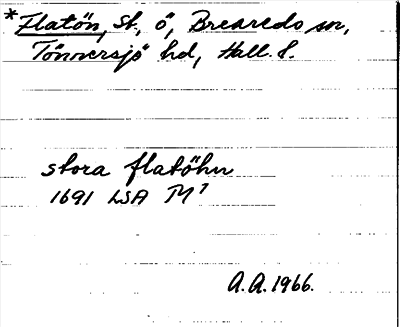 *Flatön, St., ö, Breareds sn,
Tönnersjö hd, Hall. l.
stora flatöhn
1691 LSA M⁷
A.A. 1966.